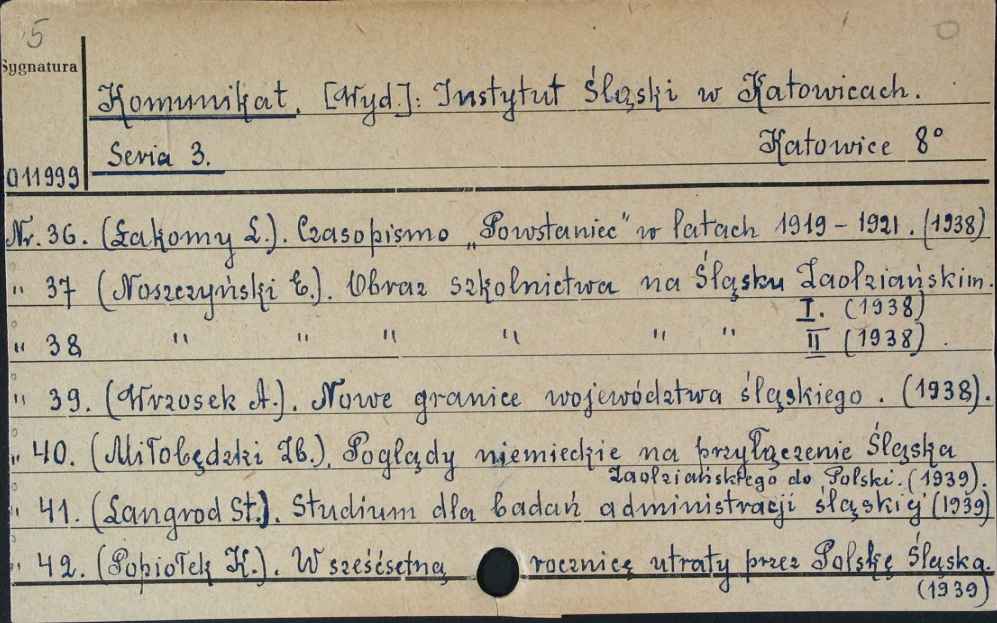 5
Sygnatura
Komunikat. [Wyd.]: Instytut Śląski w Katowicach.
Seria 3. Katowice 8°
011999
Nr. 36. (Łakomy L.). Czasopismo „Powstaniec" w latach 1919 - 1921. (1938)
" 37 (Noszczyński E.). Obraz szkolnictwa na Śląsku Zaolziańskim.
I. (1938)
" 38 " " " " " " II (1938).
" 39. (Wrzosek A.). Nowe granice województwa śląskiego. (1938).
" 40. (Miłobędzki Zb.). Poglądy niemieckie na przyłączenie Śląska
Zaolziańskiego do Polski. (1939).
" 41. (Langrod St.). Studium dla badań administracji śląskiej (1939)
" 42. (Popiołek K.). W sześćsetną rocznicę utraty przez Polskę Śląska.
(1939)